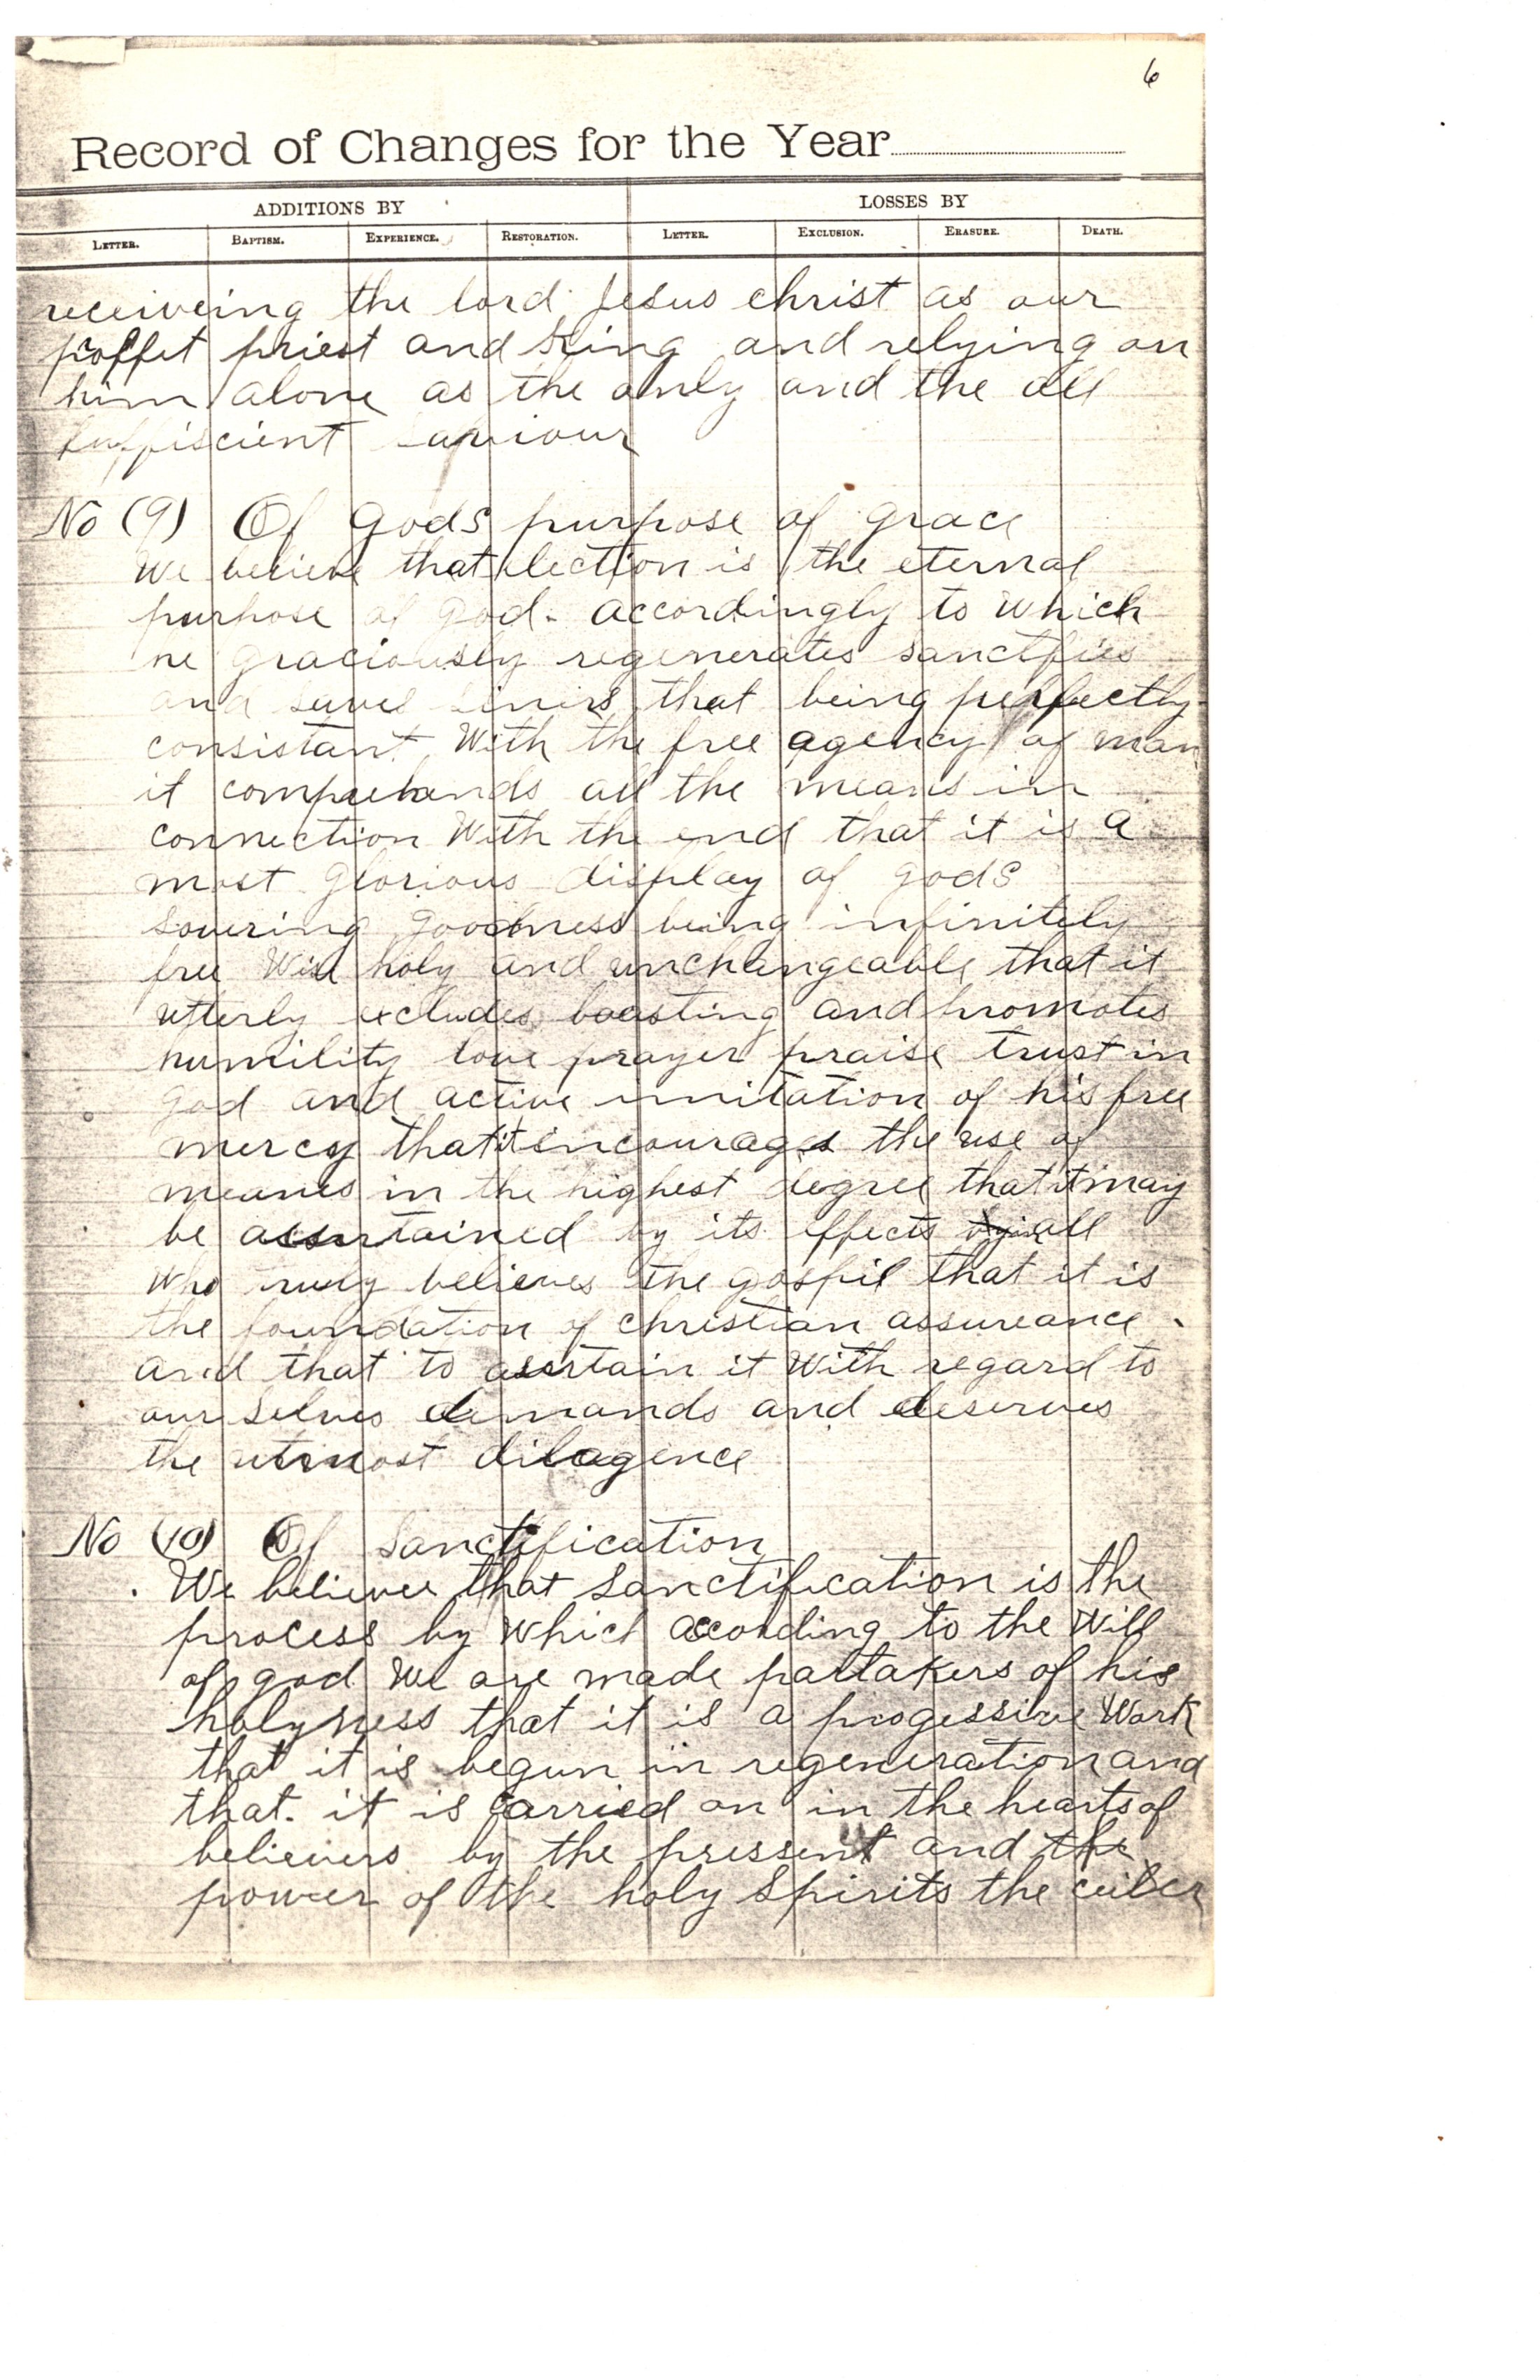 6
Record of Changes for the Year
ADDITIONS BY LOSSES BY
LETTER. BAPTISM. EXPERIENCE. RESTORATION. LETTER. EXCLUSION. ERASURE. DEATH.
receiveing the lord Jesus christ as our
proffet priest and King and relying on
him alone as the only and the all
suffiscient saviour
No (9) Of gods purpose of grace
We believe that election is the eternal
purpose of god. accordingly to which
he graciously regenerates sanctfies
and saves siners that being perfectly
consistant With the free agency of man
it comprehands all the means in
connection With the end that it is a
most glorious display of gods
sovering goodness being infinitely
free Wise holy and unchangeable that it
utterly excludes boasting and promotes
humility love prayer praise trust in
god and active imitation of his free
mercy that it incourages the use of
means in the highest degree that it may
be assertained by its effects all
Who truly believes the gospil that it is
the foundation of christian assureance.
and that to asertain it With regard to
our selves demands and deserves
the utmost dilagence
No (10) Of Sanctification
We believe that Sanctification is the
process by Which acording to the Will
of god We are made partakers of his
holyness that it is a progessive Work
that it is begun in regeneration and
that. it is carried on in the hearts of
believers by the pressent and the
power of the holy Spirits the